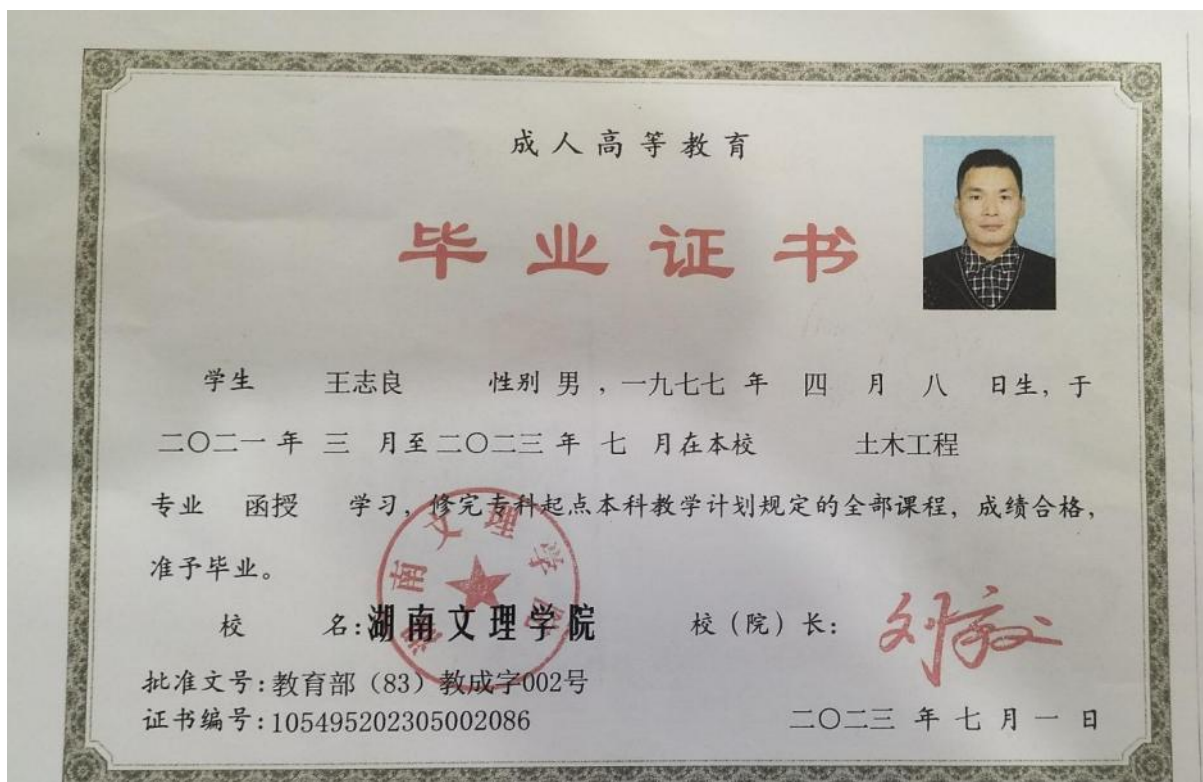 成人高等教育
毕业证书
学生 王志良 性别 男 ，一九七七 年 四 月 八 日生，于
二〇二一 年 三 月至 二〇二三 年 七 月在本校 土木工程
专业 函授 学习，修完专科起点本科教学计划规定的全部课程，成绩合格，
准予毕业。
湖南文理学院
校 名：湖南文理学院 校（院）长：
批准文号：教育部（83）教成字002号
证书编号：105495202305002086 二〇二三 年 七 月 一 日